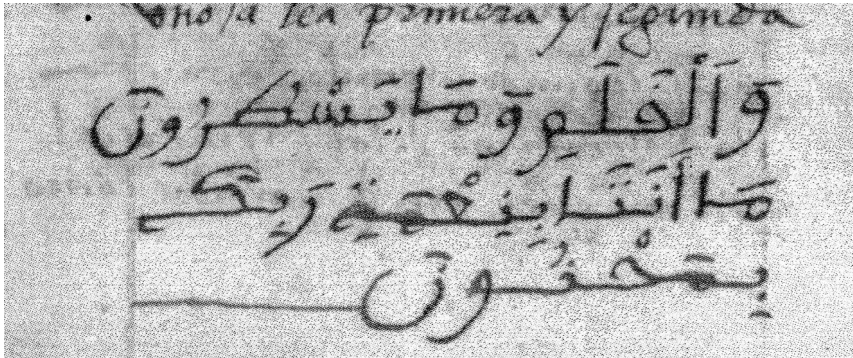 sea primera y segunda
وَالْقَلَمِ وَمَا يَسْطُرُونَ
مَا أَنْتَا بِنِعْمَةِ رَبِّكَ
بِمَجْنُونٍ